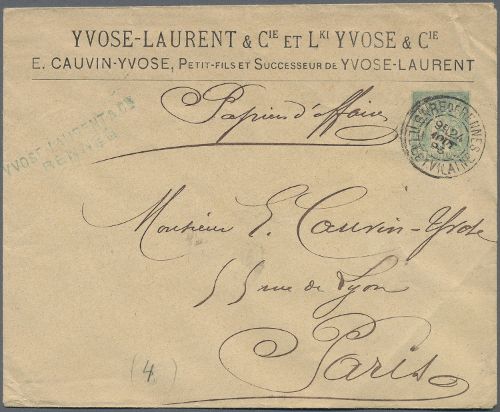 YVOSE-LAURENT & CIE ET LKI YVOSE & CIE
E. CAUVIN-YVOSE, PETIT-FILS ET SUCCESSEUR DE YVOSE-LAURENT
Papiers d'affaires
YVOSE-LAURENT & CIE
RENNES
GARE DE RENNES
ILLE-ET-VILAINE
Monsieur E. Cauvin-Yvose
55 rue de Lyon
Paris
(4)